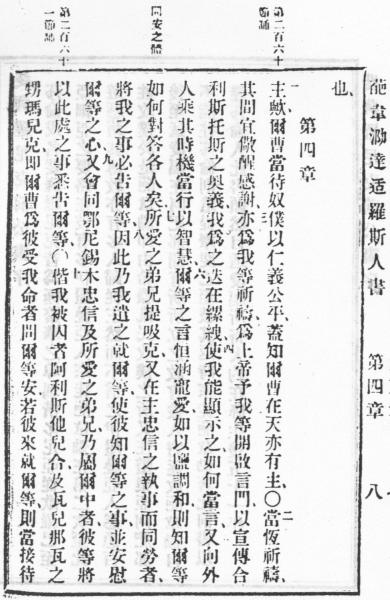 葩韋泐達适羅斯人書　第四章　八
第二百六十節誦
問安之體
第二百六十一節誦
也、
第四章
一主歟、爾曹當待奴僕以仁義公平、蓋知爾曹在天亦有主、〇二當恆祈禱、
其間宜儆醒感謝、三亦爲我等祈禱、爲上帝予我等開啟言門、以宣傳合
利斯托斯之奧義、我爲之迭在縲絏、四使我能顯示之、如何當言、五又向外
人乘其時機當行以智慧、六爾等之言恒涵寵愛、如以鹽調和、則知爾等
如何對答各人矣、七所愛之弟兄提吸克、又在主忠信之執事而同勞者、
將我之事必吿爾等、八因此乃我遣之就爾等、使彼知爾等之事、並安慰
爾等之心、九又會同鄂尼錫木忠信及所愛之弟兄、乃屬爾中者、彼等將
以此處之事悉吿爾等、〇十偕我被囚者阿利斯他兒合、及瓦兒那瓦之
甥瑪兒克、即爾曹爲彼受我命者、問爾等安、若彼來就爾等、則當接待